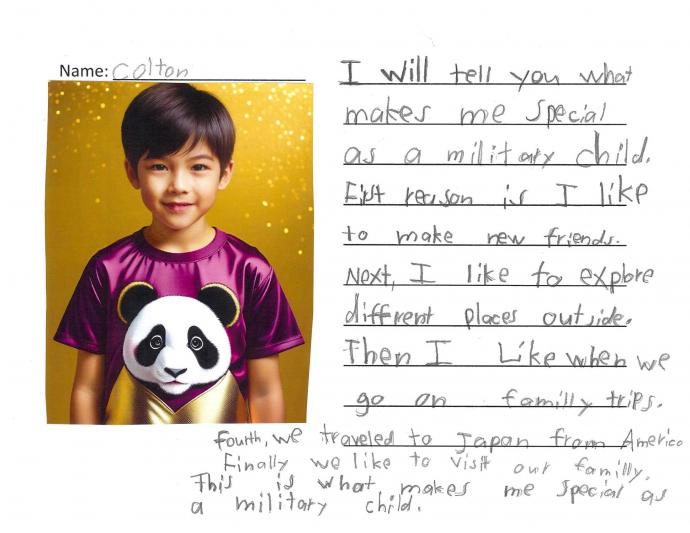 Name: Colton
I will tell you what
makes me special
as a military child.
First reason is I like
to make new friends.
Next, I like to explore
different places outside.
Then I Like when we
go on familly trips.
Fourth, we traveled to Japan from America
Finally we like to visit our familly.
This is what makes me special as
a military child.